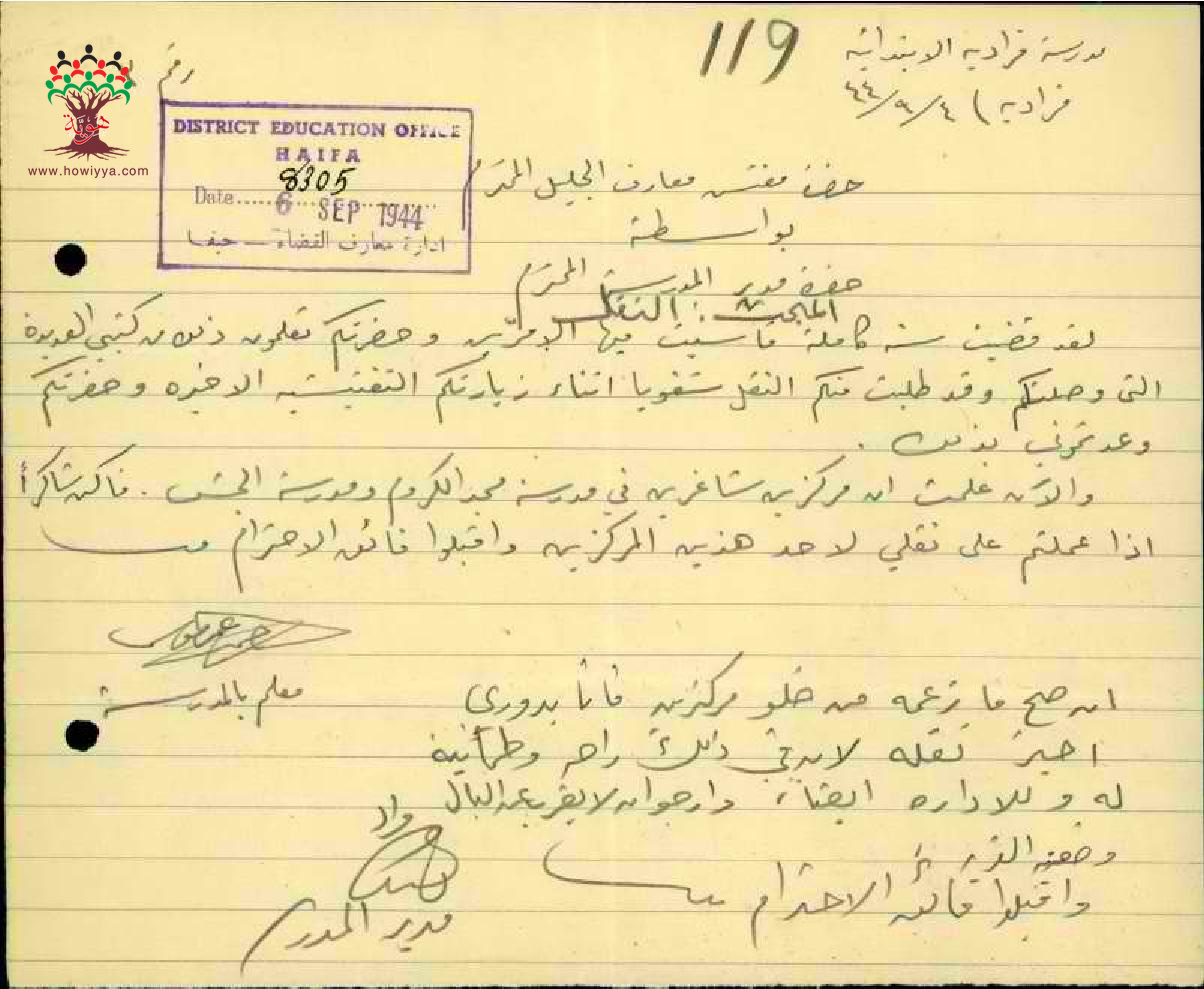 119
مدرسة فرادية الابتدائية
فرادية ) ٤/٩/٤٤
رقم
www.howiyya.com
DISTRICT EDUCATION OFFICE
HAIFA
8305
Date..... 6 SEP 1944
ادارة معارف القضاء — حيفا
حضرة مفتش معارف الجليل المحترم
بواسطة
حضرة مدير المدرسة المحترم
المبحث : النقل
لقد قضيت سنة كاملة قاسيت فيها الامرّين وحضرتكم تعلمون ذلك من كتبي العديدة
التي وصلتكم وقد طلبت منكم النقل شفويا اثناء زيارتكم التفتيشيه الاخيره وحضرتكم
وعدتموني بذلك .
والآن علمت ان مركزين شاغرين في مدرسة مجد الكروم ومدرسة الجش . فاكون شاكراً
اذا عملتم على نقلي لاحد هذين المركزين واقبلوا فائق الاحترام
معلم بالمدرسة
ان صح ما زعمه من خلو مركزين فانا بدوري
احبذ نقله لان في ذلك راحه وطمأنينه
له وللاداره ايضا، وارجو ان لا يغرب عن البال
واقبلوا فائق الاحترام
مدير المدرسة